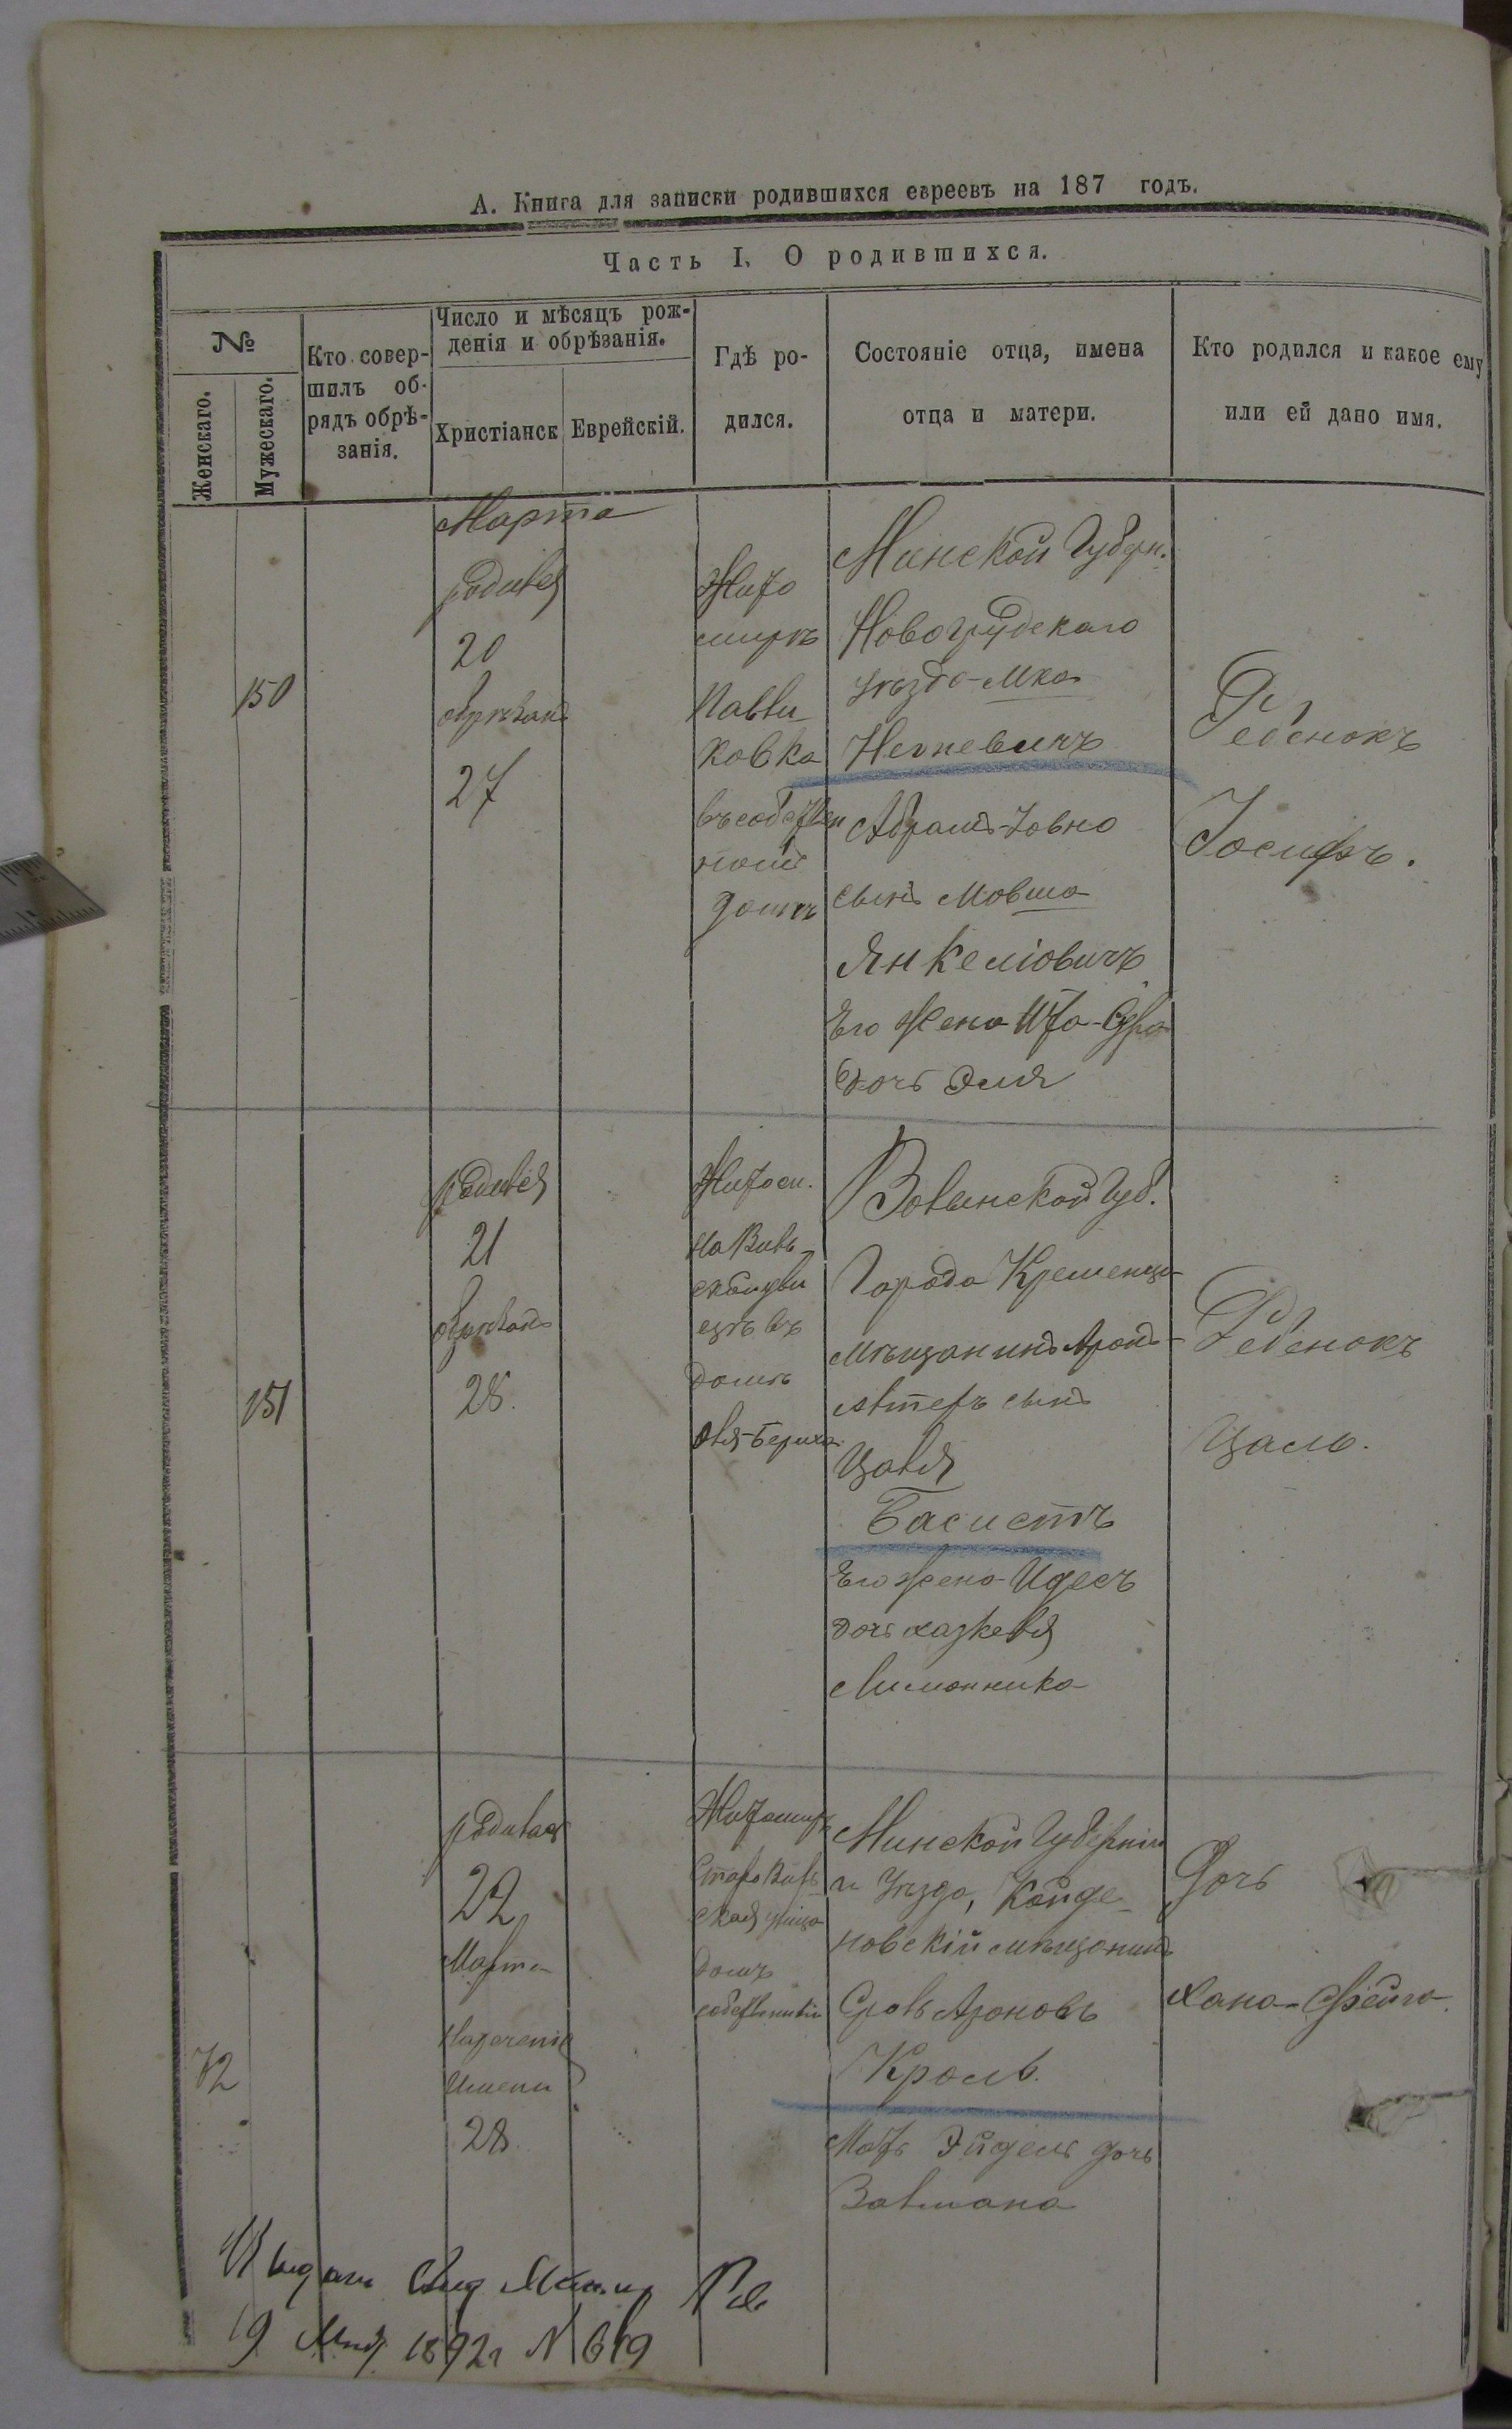 А. Книга для записки родившихся евреевъ на 187 годъ.
Часть I. О родившихся.
№
Женскаго.
Мужескаго.
Кто совер-
шилъ об-
рядъ обрѣ-
занія.
Число и мѣсяцъ рож-
денія и обрѣзанія.
Христіанск
Еврейскій.
Гдѣ ро-
дился.
Состояніе отца, имена
отца и матери.
Кто родился и какое ему
или ей дано имя.
Марта
150
родился
20
обрѣзанъ
27
Жито
миръ
Павли
ковка
въ собствен
номъ
домѣ
Минской Губерн.
Новогрудскаго
уѣзда мка
Негневичъ
Абрамъ-Іовно
сынъ Мовша
Янкеліовичъ
Его жена Ита-
дочь Эля
Ребенокъ
Іосифъ.
151
родился
21
обрѣзанъ
28.
Житом.
на Виль
ской ули
цѣ въ
домѣ
Волынской Губ.
Города Кременца
мѣщанинъ Аронъ-
Алтеръ сынъ
Цаля
Басистъ
Его жена Идесъ
дочь Хазкеля
Лимонника
Ребенокъ
Цаль.
72
родилась
22
Марта
Наречение
Имени
28.
Житомиръ
Старо Виль
ская улица
домъ
Минской Губерніи
и Уѣзда, Койде-
новскій мѣщанинъ
Сроль Ароновъ
Кроль.
Мать Эйдель дочь
Залмана
Дочь
Хана-Фейга.
19 1892г N 619